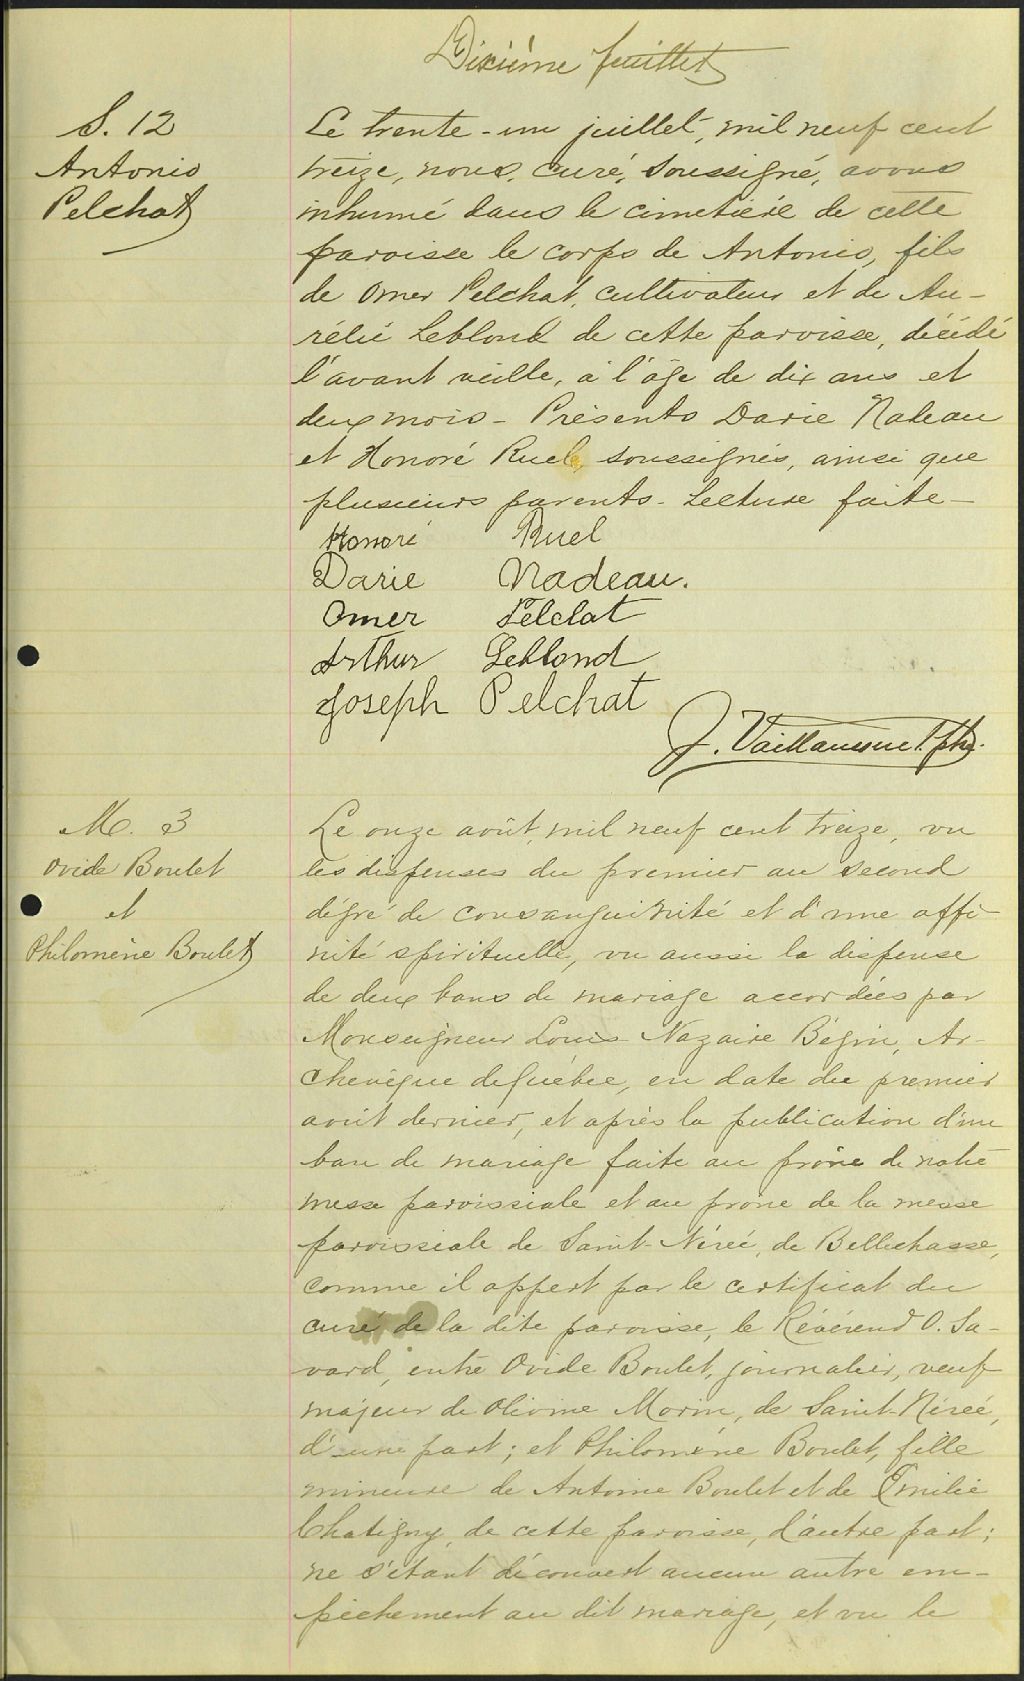 Dixième feuillet
S. 12
Antonio
Pelchat
Le trente-un juillet, mil neuf cent
treize, nous, curé, soussigné, avons
inhumé dans le cimetière de cette
paroisse le corps de Antonio, fils
de Omer Pelchat, cultivateur et de Au-
rélie Leblond de cette paroisse, décédé
l'avant veille, à l'âge de dix ans et
deux mois - Présents Darie Nadeau
et Honoré Ruel, soussignés, ainsi que
plusieurs parents - Lecture faite -
Honoré Ruel
Darie Nadeau.
Omer Pelclat
Arthur Leblond
Joseph Pelchat
J. Vaillancourt Ptre.
M. 3
Ovide Boulet
et
Philomène Boulet
Le onze août, mil neuf cent treize, vu
les dispenses du premier au second
dégré de consanguinité et d'une affi-
nité spirituelle, vu aussi la dispense
de deux bans de mariage accordées par
Monseigneur Louis-Nazaire Bégin, Ar-
chevêque de Québec, en date du premier
août dernier, et après la publication d'un
ban de mariage faite au prône de notre
messe paroissiale et au prône de la messe
paroissiale de Saint-Nérée, de Bellechasse,
comme il appert par le certificat du
curé de la dite paroisse, le Révérend O. Sa-
vard, entre Ovide Boulet, journalier, veuf
majeur de Olivine Morin, de Saint-Nérée,
d'une part; et Philomène Boulet, fille
mineure de Antoine Boulet et de Emilie
Chatigny, de cette paroisse, d'autre part;
ne s'étant découvert aucun autre em-
pêchement au dit mariage, et vu le